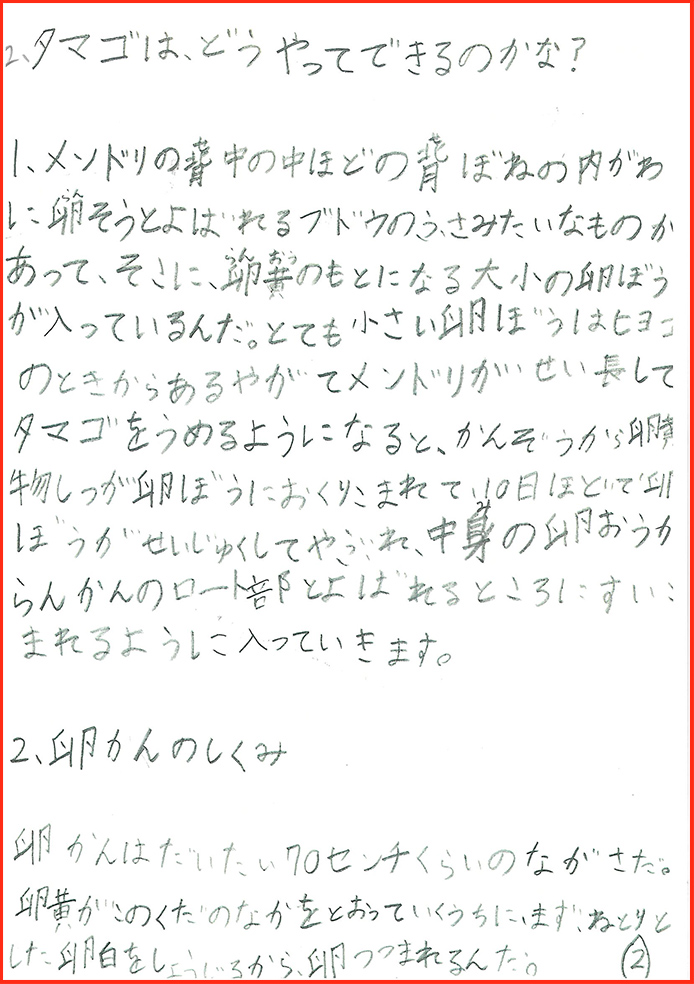 2、タマゴは、どうやってできるのかな?
1、メンドリの背中の中ほどの背ぼねの内がわ
に卵そうとよばれるブドウのふさみたいなものが
あって、そこに、卵黄のもとになる大小の卵ぼう
らん おう
が入っているんだ。とても小さい卵ぼうはヒヨコ
のときからあるやがてメンドリがせい長して
タマゴをうめるようになると、かんぞうから卵黄
物しつが卵ぼうにおくりこまれて、10日ほどで卵
ぼうがせいじゅくしてやぶれ、中身の卵おうが
み
らんかんのロート部とよばれるところにすいこ
まれるように入っていきます。
2、卵かんのしくみ
卵かんはだいたい70センチくらいのながさだ。
卵黄がこのくだのなかをとおっていくうちに、まず、ねとりと
した卵白をしょうじるから、卵つつまれるんだ。
2